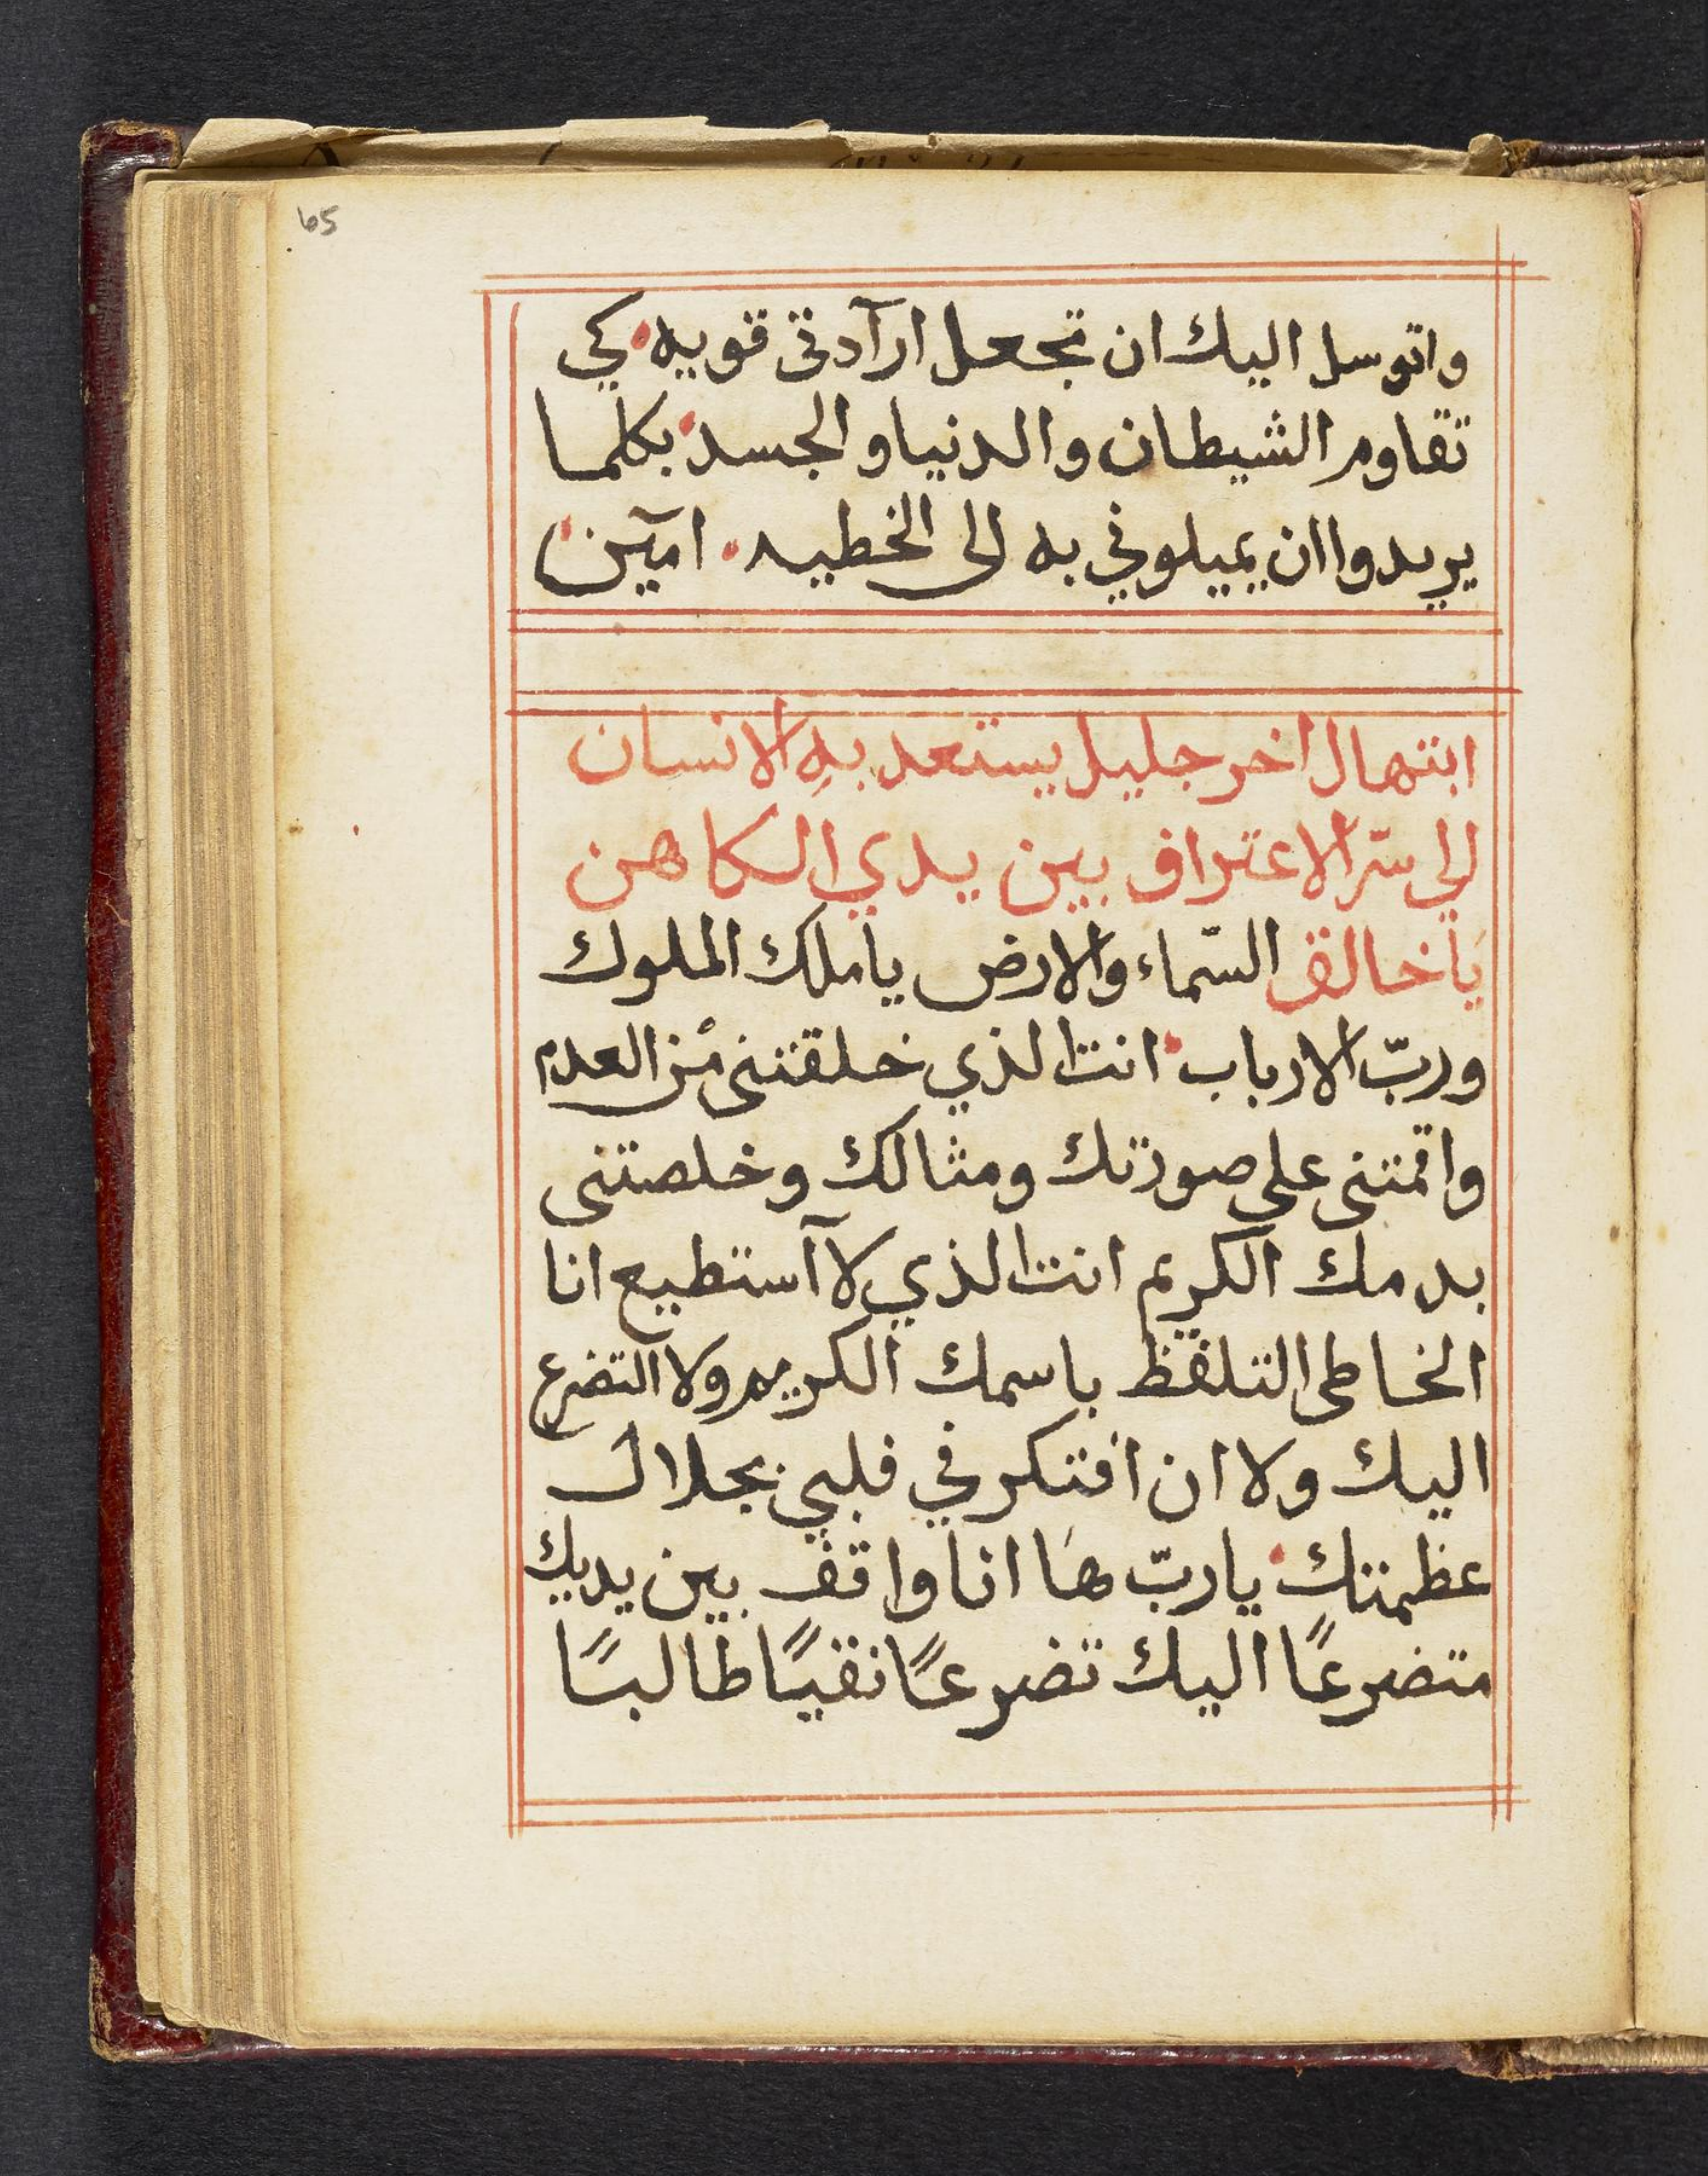 65
واتوسل اليك ان تجعل ارآدتى قويه كي
تقاوم الشيطان والدنيا والجسد بكلما
يريدوا ان يميلوني به الى الخطيه امآين
ابتهال اخر جليل يستعد بهِ الانسان
الي سّر الاعتراف بين يدي الكاهن
يَا خالق السّماء والارض يا ملك الملوك
وربّ الارباب انت الذي خلقتنى من العدم
واقمتنى على صورتك ومثالك وخلصتنى
بدمك الكريم انت الذي لا آستطيع انا
الخاطى التلفظ باسمك الكريم ولا التضرع
اليك ولا ان افتكر في قلبي بجلال
عظمتك يا ربّ هَا انا واقف بين يديك
متضرعًا اليك تضرعًا نقيًا طالبًا